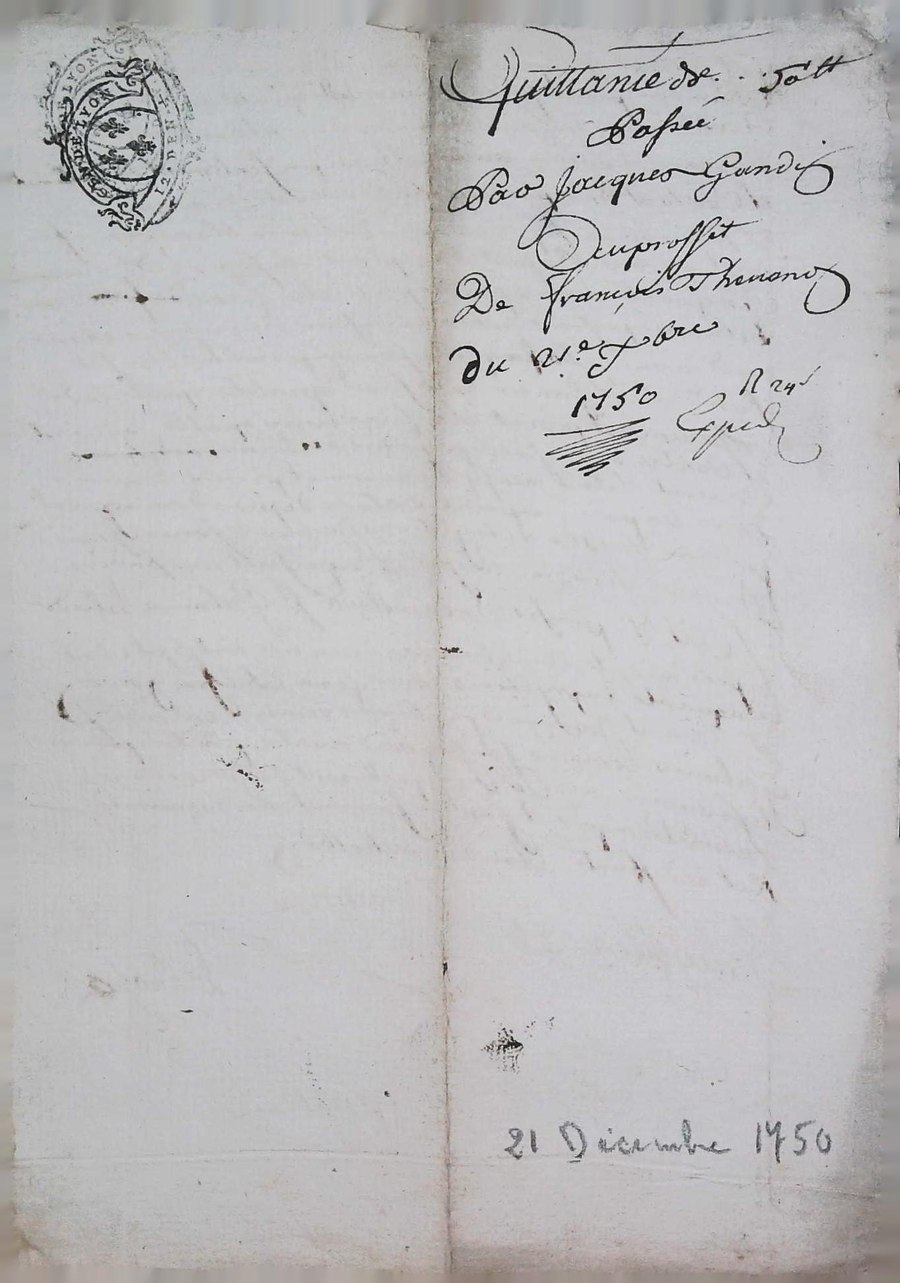 GEN. DE LYON
LYON
Quittance de . . 50 ₶
Passée
Par Jacques Gandi
Au proffit
De françois Theveno
Du 21.e xbre
1750
R 24 s
Exped
21 Décembre 1750